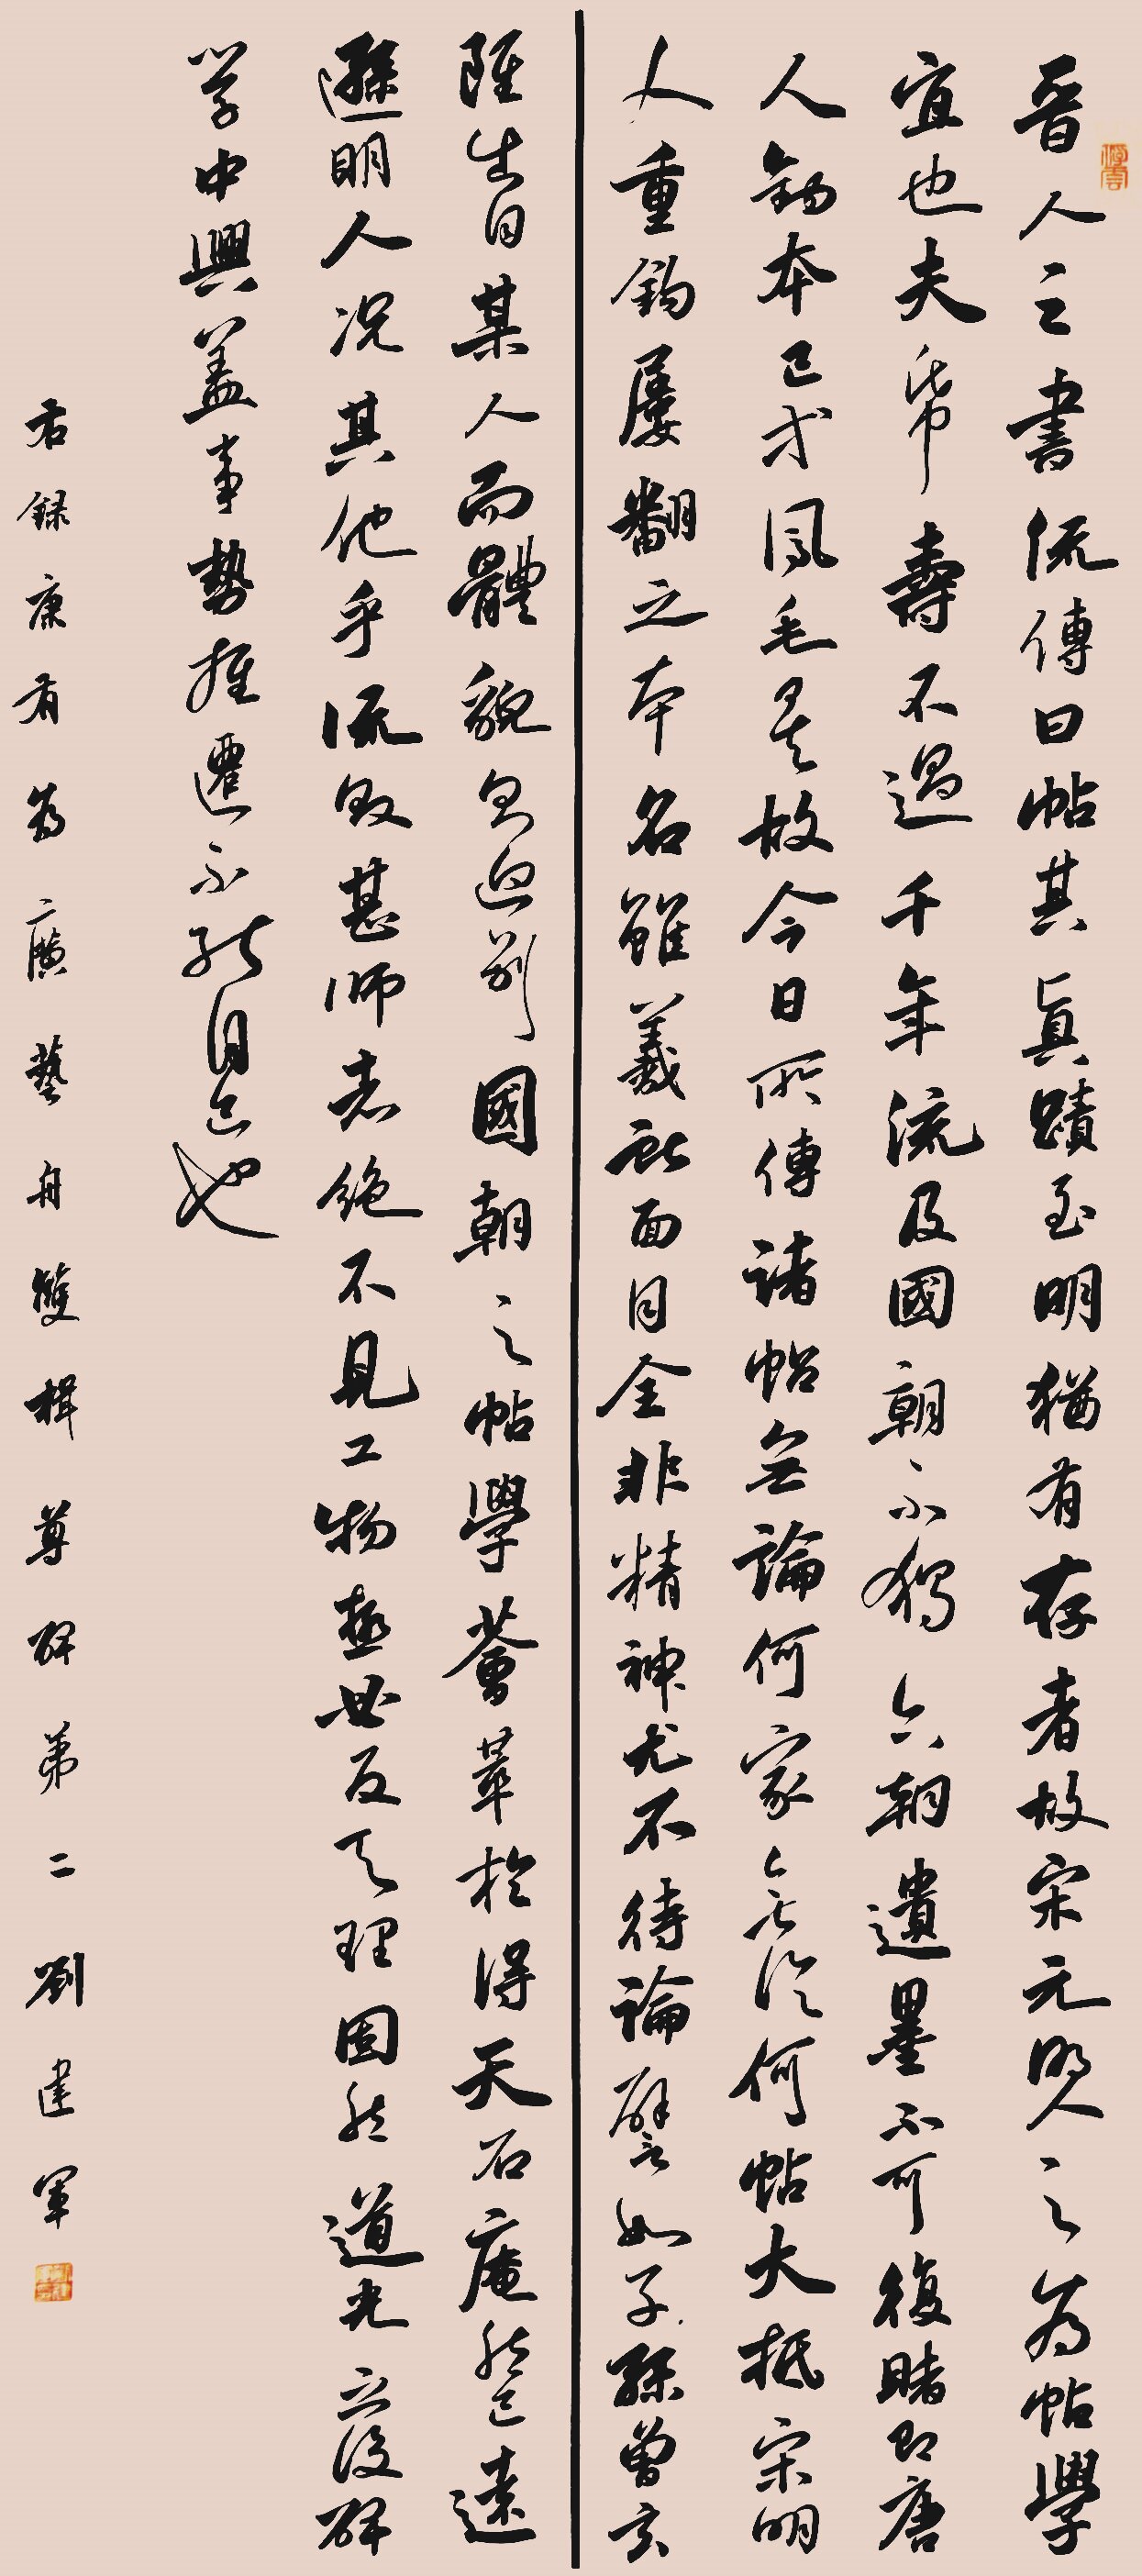 晋人之書流傳曰帖其眞蹟至明猶有存者故宋元明人之為帖學
宜也夫帋壽不過千年流及國朝不獨六朝遺墨不可復睹即唐
人鈎本已等鳳毛矣故今日所傳諸帖無論何家無論何帖大抵宋明
人重鈎屢翻之本名雖羲獻面目全非精神尤不待論譬如子孫曾玄
雖出自某人而體貌則迥別國朝之帖學薈萃於得天石庵然已遠
遜明人况其他乎流敗甚師者絶不見工物極必反天理固然道光之後碑
學中興蓋事勢推遷不能自已也
右録康有為廣藝舟雙楫尊碑第二劉建軍